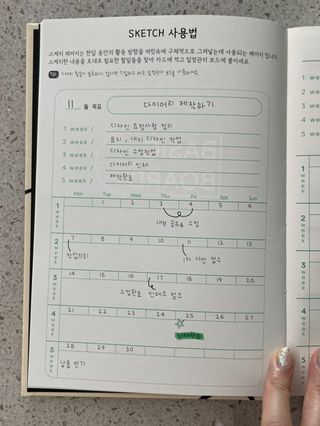 SKETCH 사용법
스케치 페이지는 한달 동안의 활동 방향을 머릿속에 구체적으로 그려넣는데 사용되는 페이지 입니다
스케치한 내용을 토대로 필요한 할일들을 찾아 카드에 적고 일정관리 보드에 붙이세요
TIP
11 월 목표 다이어리 제작하기
1 week / 디자인 요청사항 정리
2 week / 표지, 내지 디자인 작업
3 week / 디자인 수정작업
4 week / 다이어리 인쇄
5 week / 제작완료
Mon Tue Wed Thu Fri Sat Sun
1 week 1 2 3 4 5 6
내부 공유 & 수정
2 week 7 8 9 10 11 12 13
작업의뢰 1차 시안 접수
3 week 14 15 16 17 18 19 20
수정완료 인쇄소 발주
4 week 21 22 23 24 25 26 27
5 week 28 29 30
납품 받기